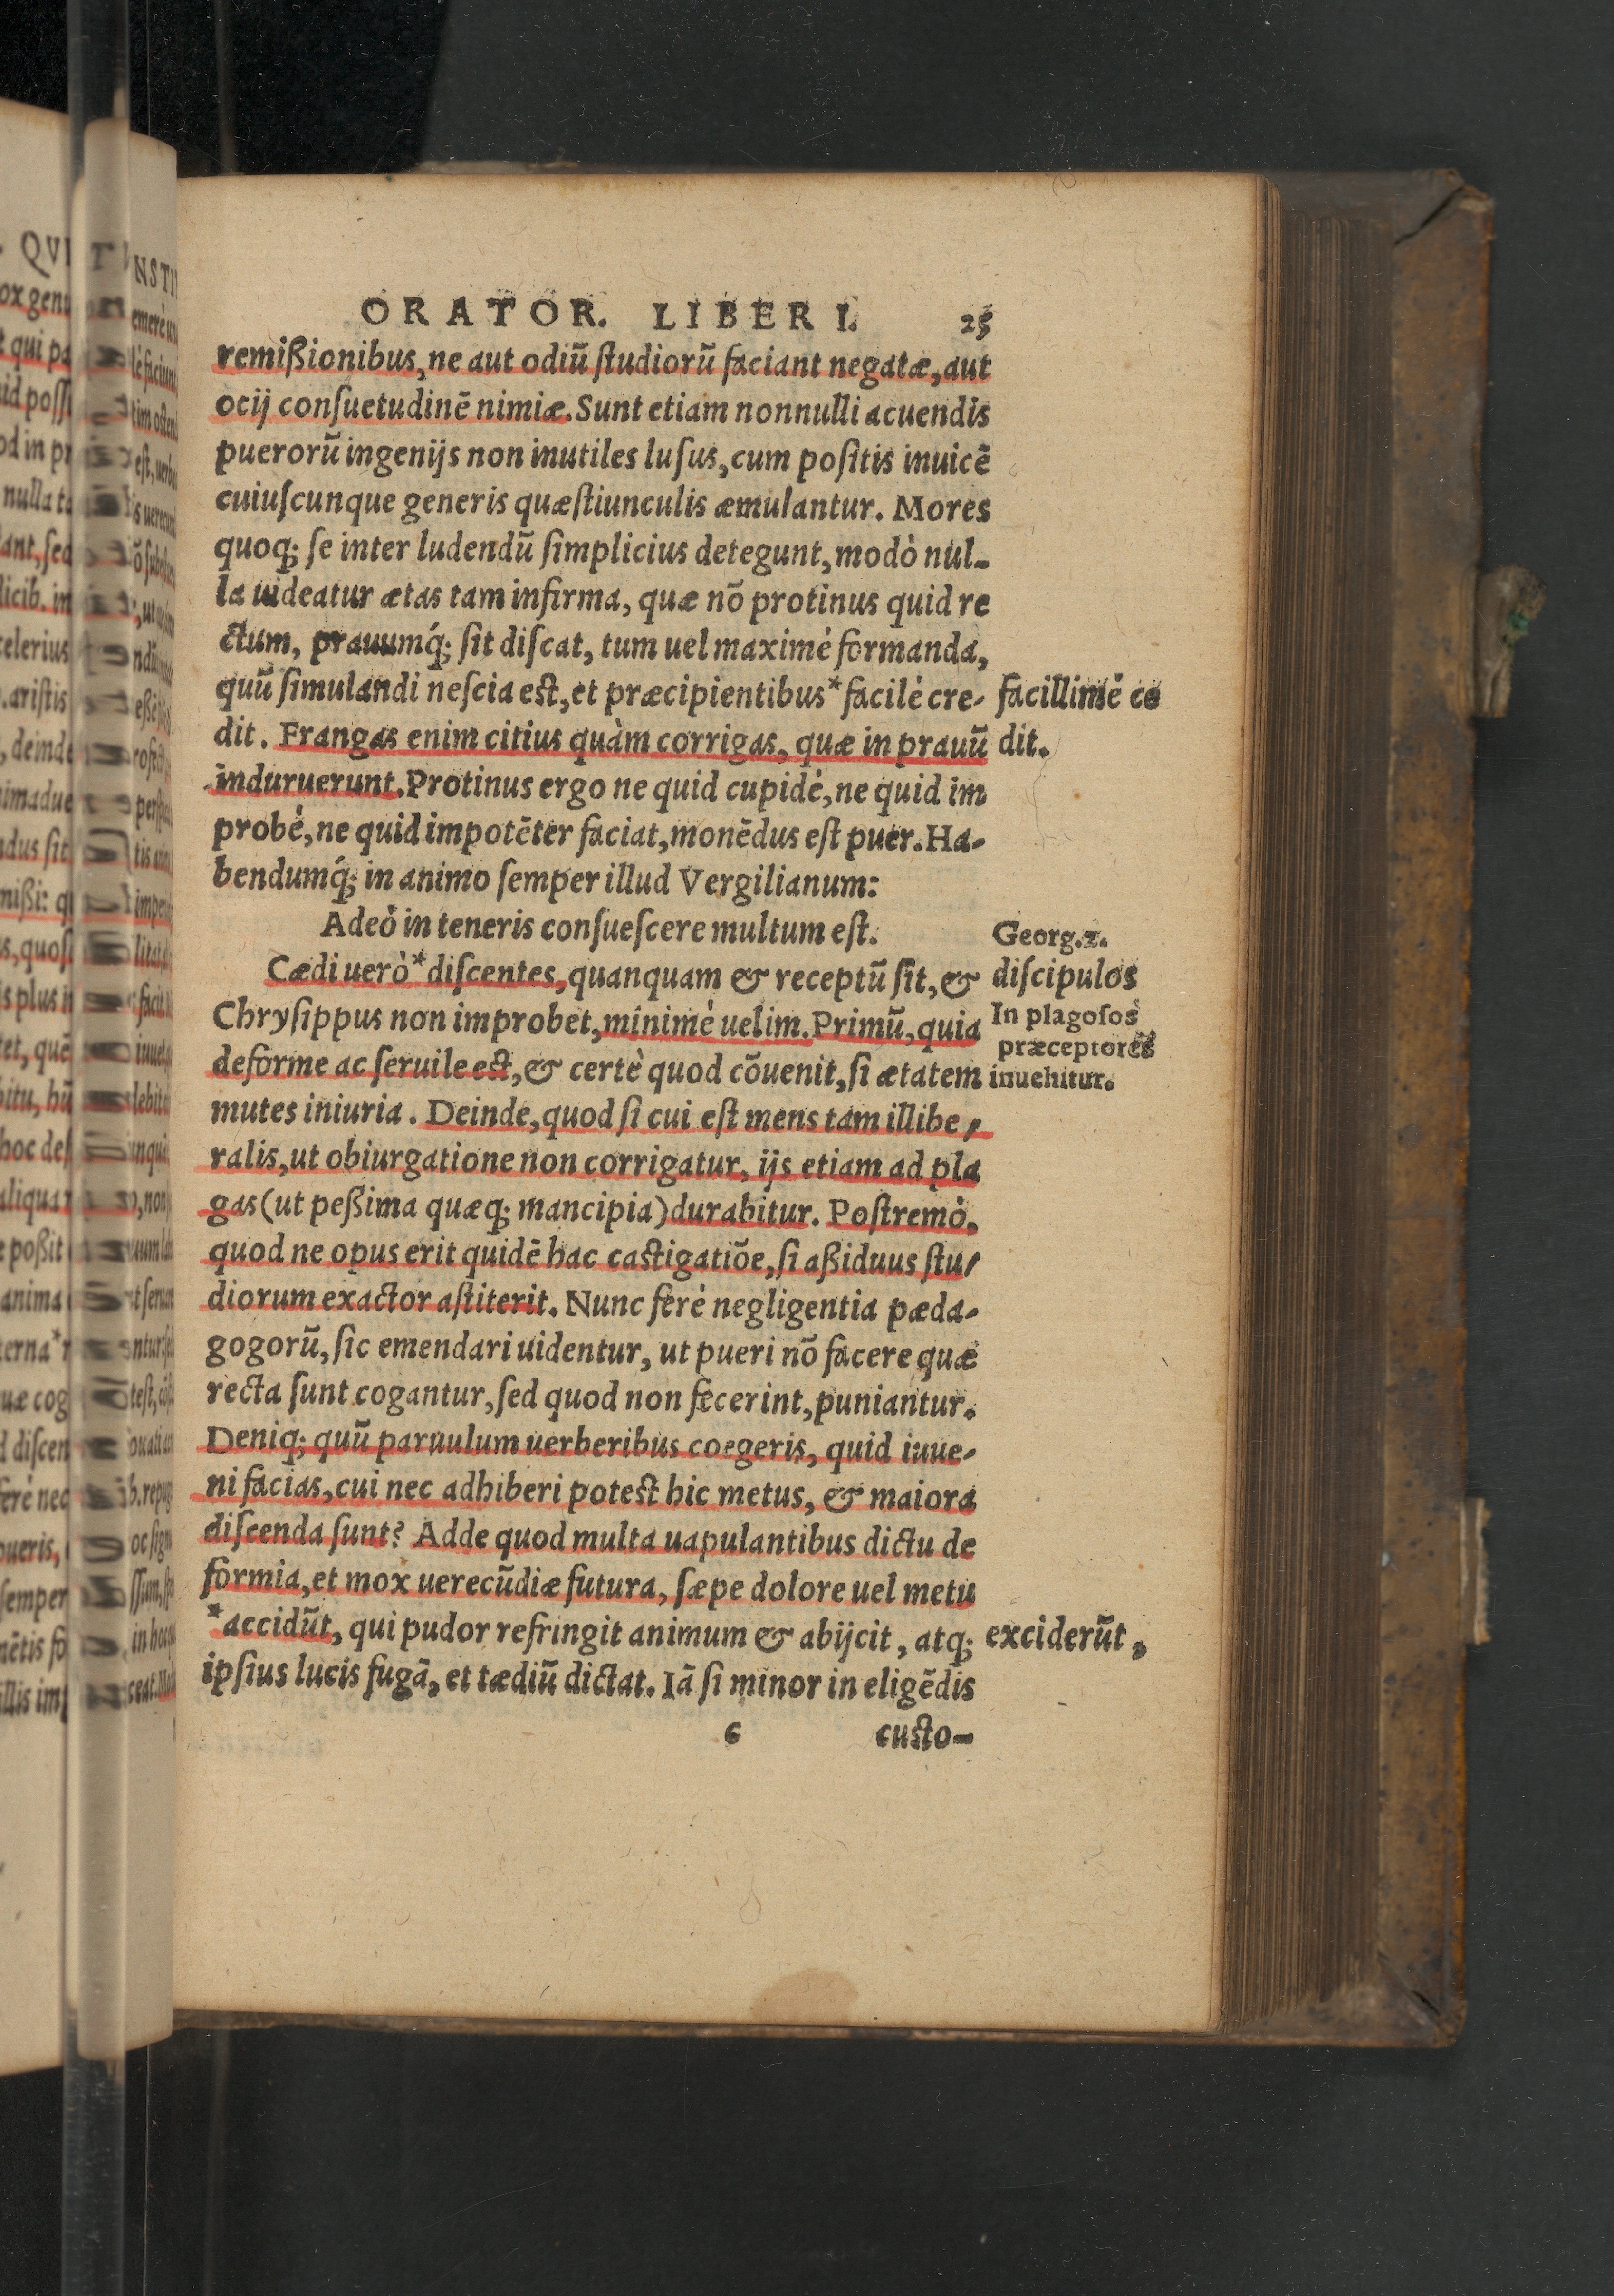 ORATOR. LIBER I. 25
remißionibus, ne aut odiũ ſtudiorũ faciant negatæ, aut
ocij conſuetudinẽ nimiæ. Sunt etiam nonnulli acuendis
puerorũ ingenijs non inutiles luſus, cum poſitis inuicẽ
cuiuſcunque generis quæſtiunculis æmulantur. Mores
quoq; ſe inter ludendũ ſimplicius detegunt, modò nul-
la uideatur ætas tam infirma, quæ nõ protinus quid re
ctum, prauumq́; ſit diſcat, tum uel maximè formanda,
quũ ſimulandi neſcia eſt, et præcipientibus * facilè cre-
dit. Frangas enim citius quàm corrigas, quæ in prauũ
induruerunt. Protinus ergo ne quid cupidè, ne quid im
probè, ne quid impotẽter faciat, monẽdus eſt puer. Ha-
bendumq́; in animo ſemper illud Vergilianum:
Adeò in teneris conſueſcere multum eſt.
Cædi uerò * diſcentes, quanquam & receptũ ſit, &
Chryſippus non improbet, minimè uelim. Primũ, quia
deforme ac ſeruile eſt, & certè quod cõuenit, ſi ætatem
mutes iniuria. Deinde, quod ſi cui eſt mens tam illibe-
ralis, ut obiurgatione non corrigatur, ijs etiam ad pla
gas (ut peßima quæq; mancipia) durabitur. Poſtremò,
quod ne opus erit quidẽ hac caſtigatiõe, ſi aßiduus ſtu-
diorum exactor aſtiterit. Nunc ferè negligentia pæda-
gogorũ, ſic emendari uidentur, ut pueri nõ facere quæ
recta ſunt cogantur, ſed quod non fecerint, puniantur.
Deniq; quũ paruulum uerberibus coegeris, quid iuue-
ni facias, cui nec adhiberi poteſt hic metus, & maiora
diſcenda ſunt? Adde quod multa uapulantibus dictu de
formia, et mox uerecũdiæ futura, ſæpe dolore uel metu
* accidũt, qui pudor refringit animum & abijcit, atq;
ipſius lucis fugã, et tædiũ dictat. Iã ſi minor in eligẽdis
c custo-
facillimè ce
dit.
Georg. 2.
diſcipulos
In plagoſos
præceptores
inuehitur.
exciderũt,